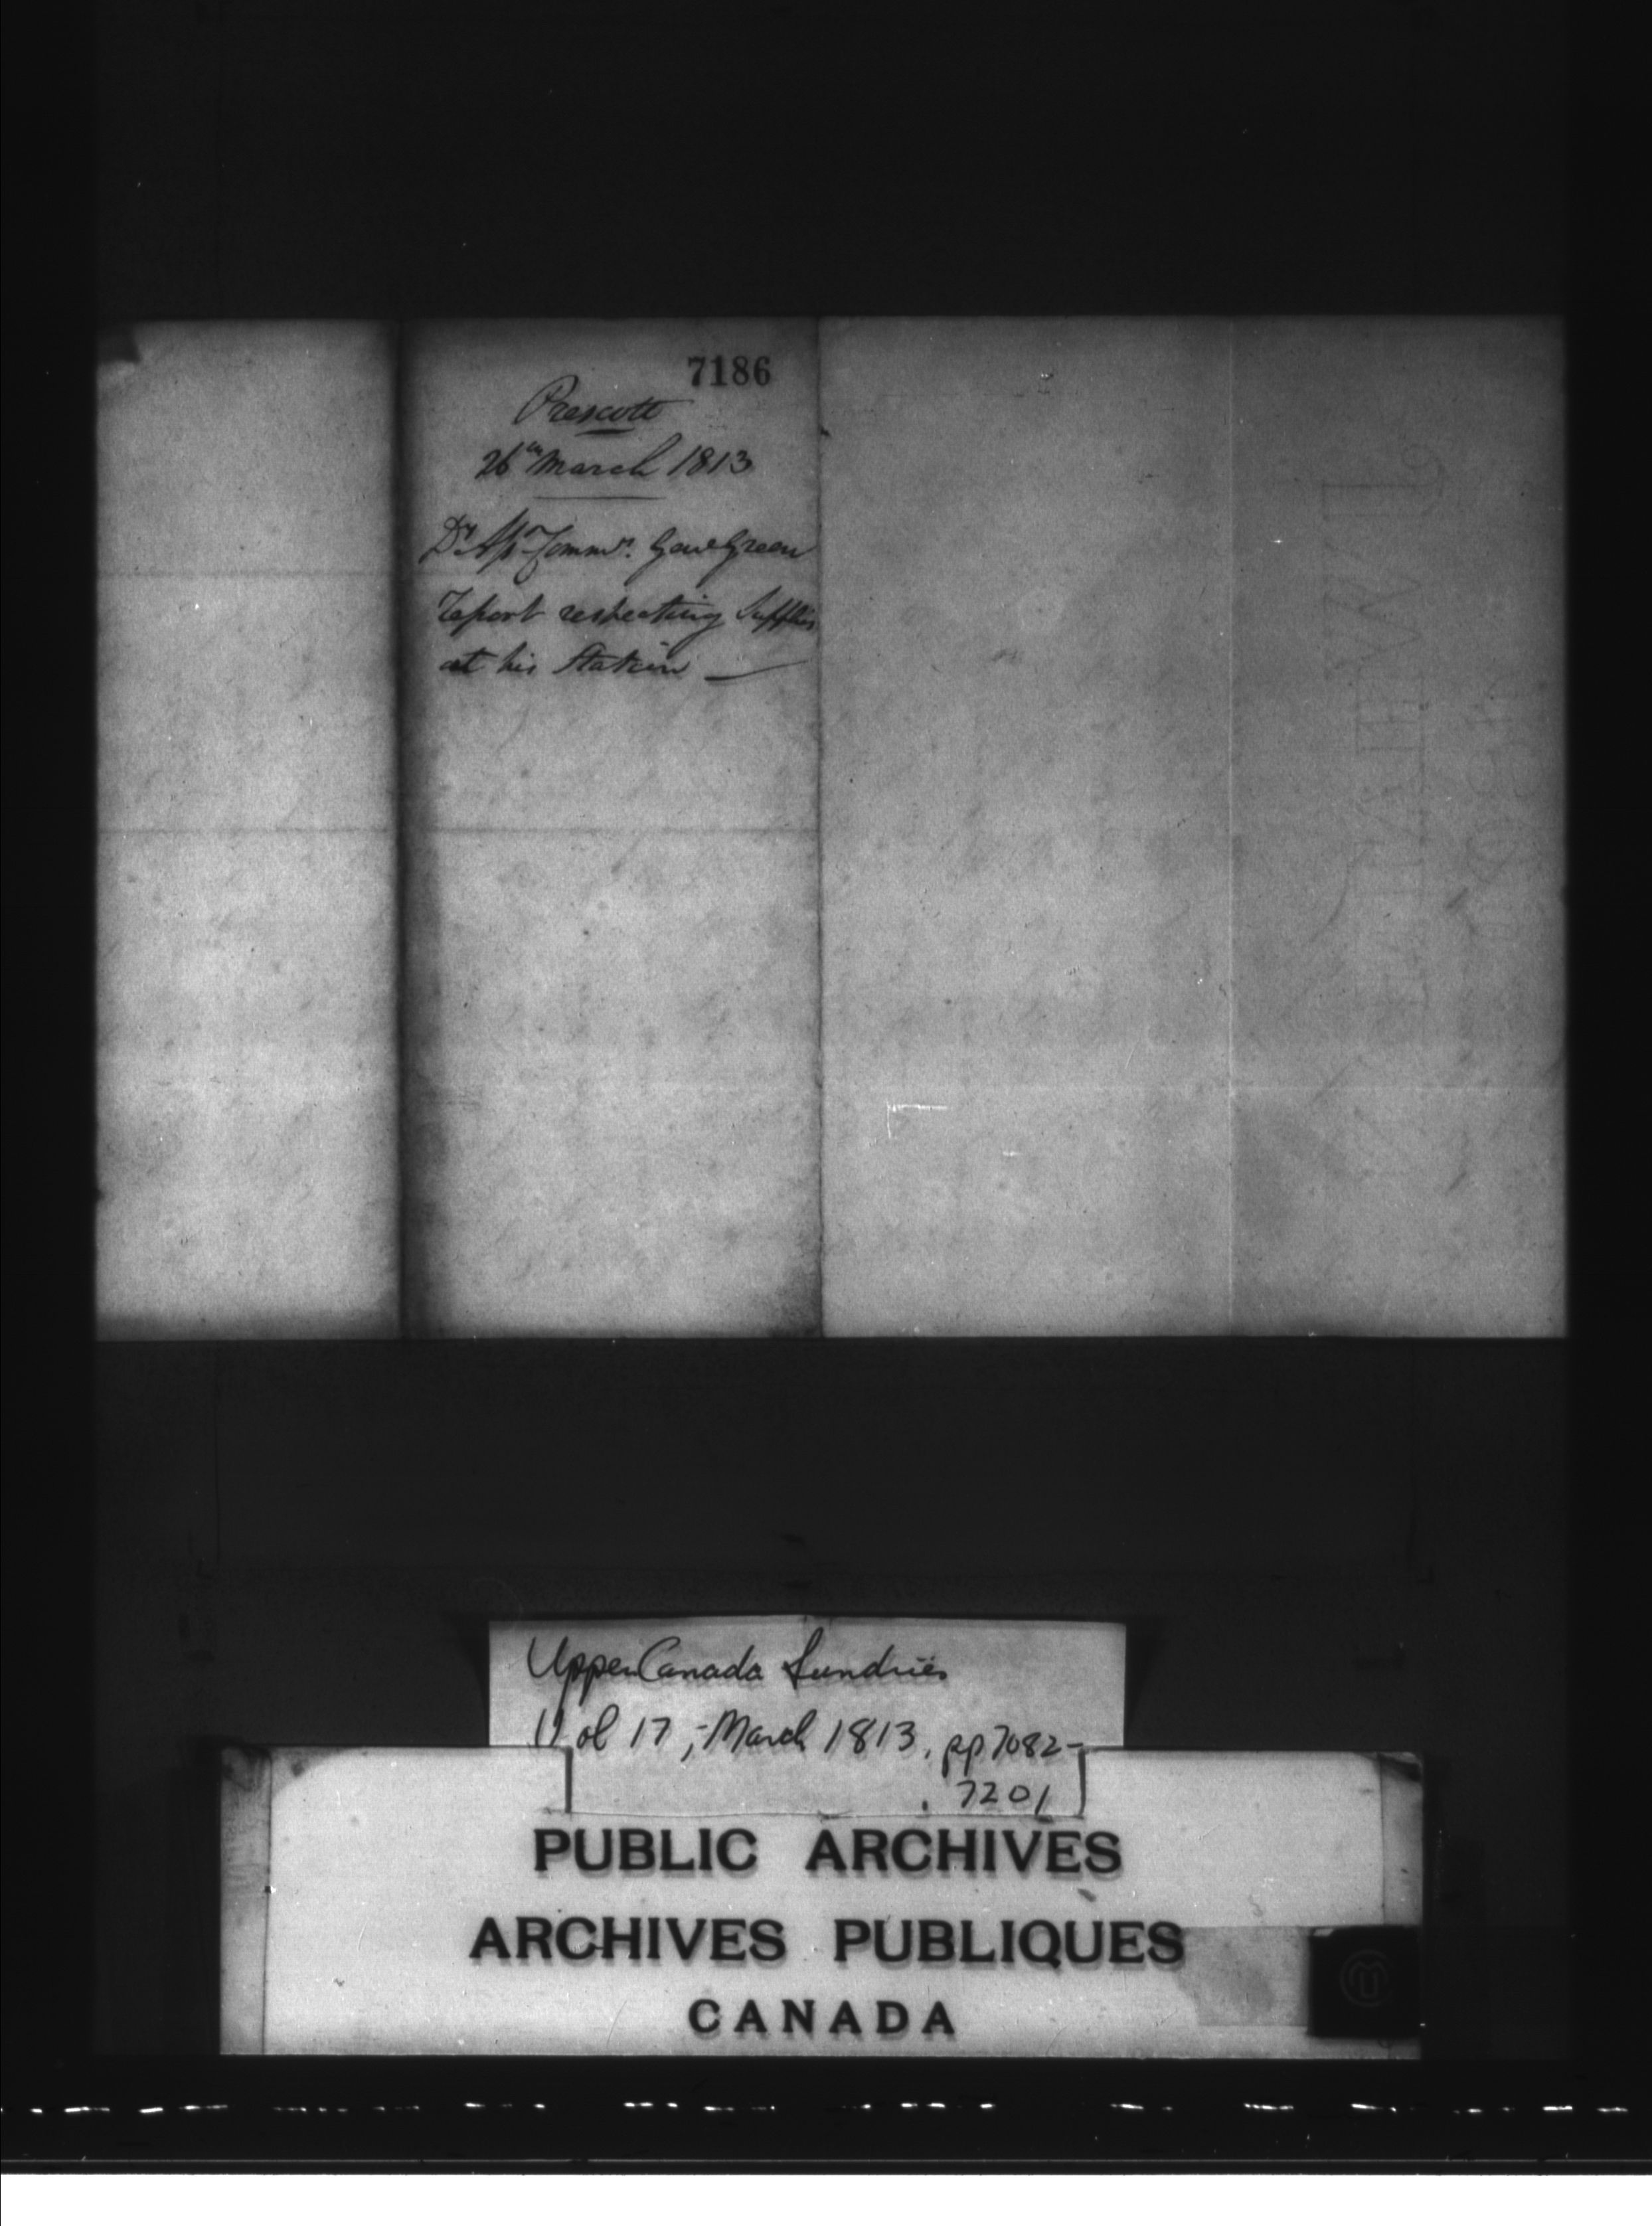 7186
Prescott
26th March 1813
Dy Asst Commy. Genl Green
report respecting Supplies
at his Station —
Upper Canada Sundries
Vol 17, - March 1813, pp 7082-
7201
PUBLIC ARCHIVES
ARCHIVES PUBLIQUES
CANADA